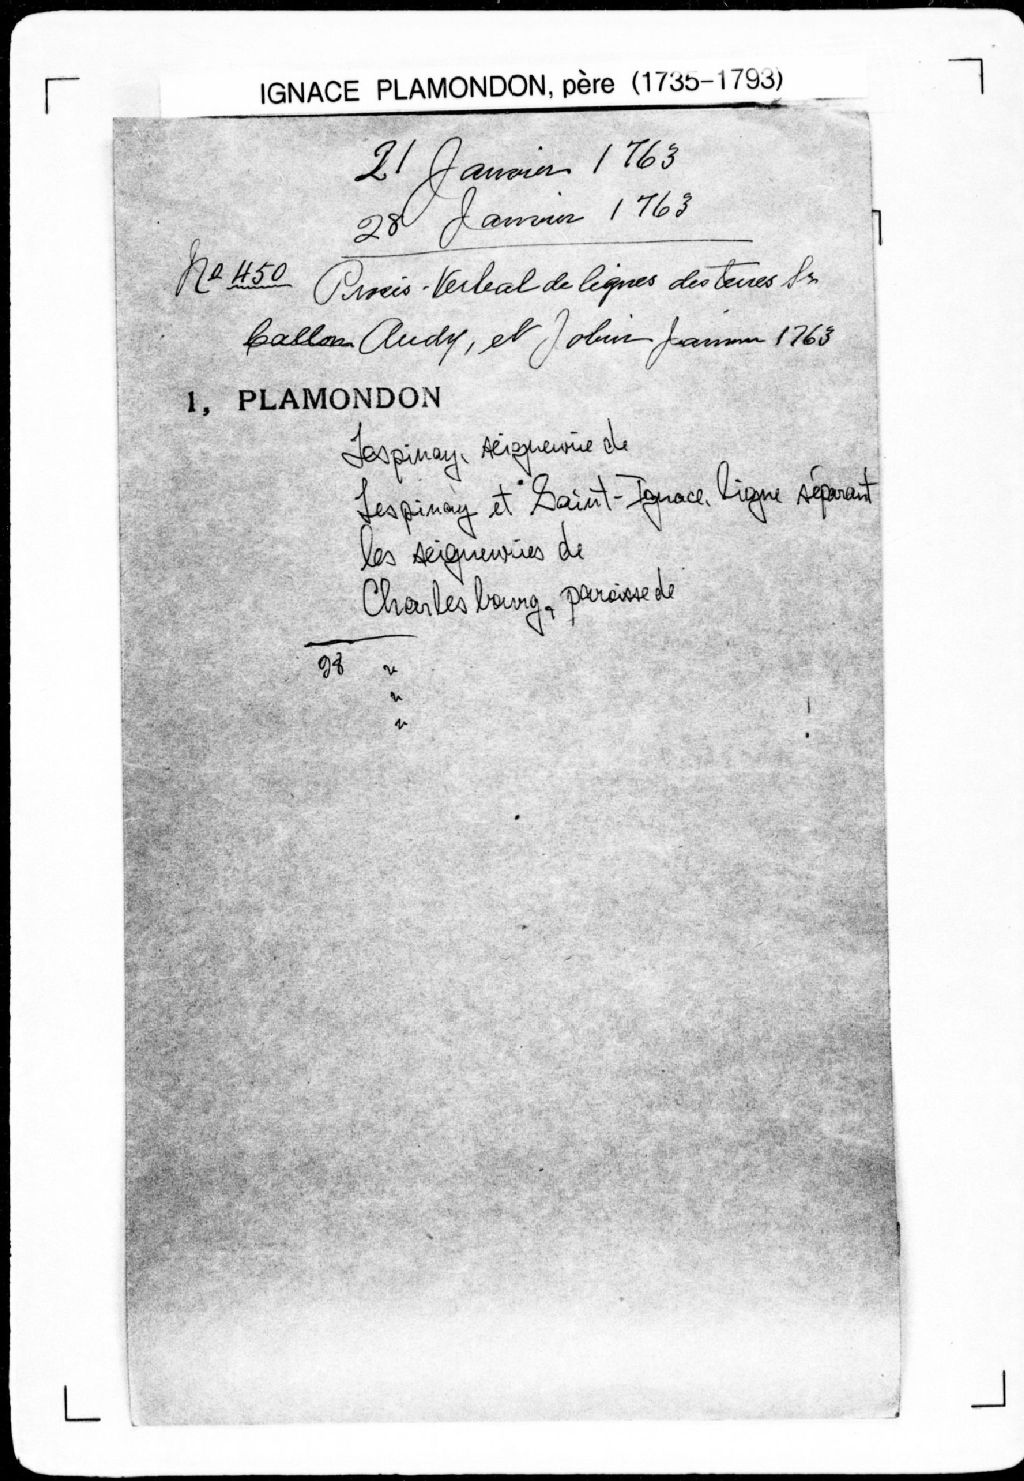 IGNACE PLAMONDON, père (1735-1793)
21 Janvier 1763
28 Janvier 1763
No 450 Procès-Verbal de lignes des terres Sr
Audy, et Jobin Janvier 1763
1, PLAMONDON
Lespinay, seigneurie de
Lespinay et Saint-Ignace, ligne séparant
les seigneuries de
Charlesbourg, paroisse de
28 "
"
"